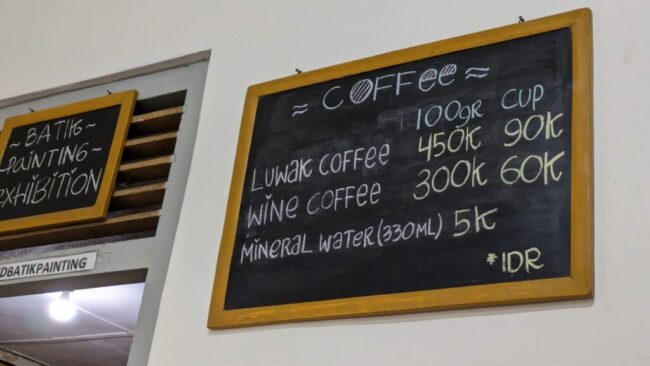 ~BATIK~
PAINTING~
EXHIBITION
DBATIKPAINTING
≈ COFFEE ≈
100gr CUP
LUWAK COFFEE 450K 90K
WINE COFFEE 300K 60K
MINERAL WATER (330ML) 5K
*IDR